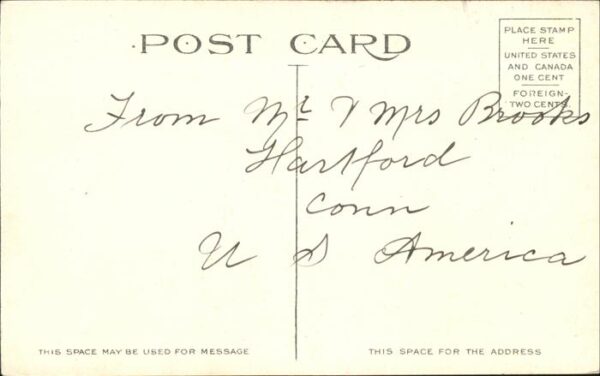 POST CARD
PLACE STAMP
HERE
UNITED STATES
AND CANADA
ONE CENT
FOREIGN-
TWO CENTS
From Mr & Mrs Brooks
Hartford
Conn
U S America
THIS SPACE MAY BE USED FOR MESSAGE
THIS SPACE FOR THE ADDRESS